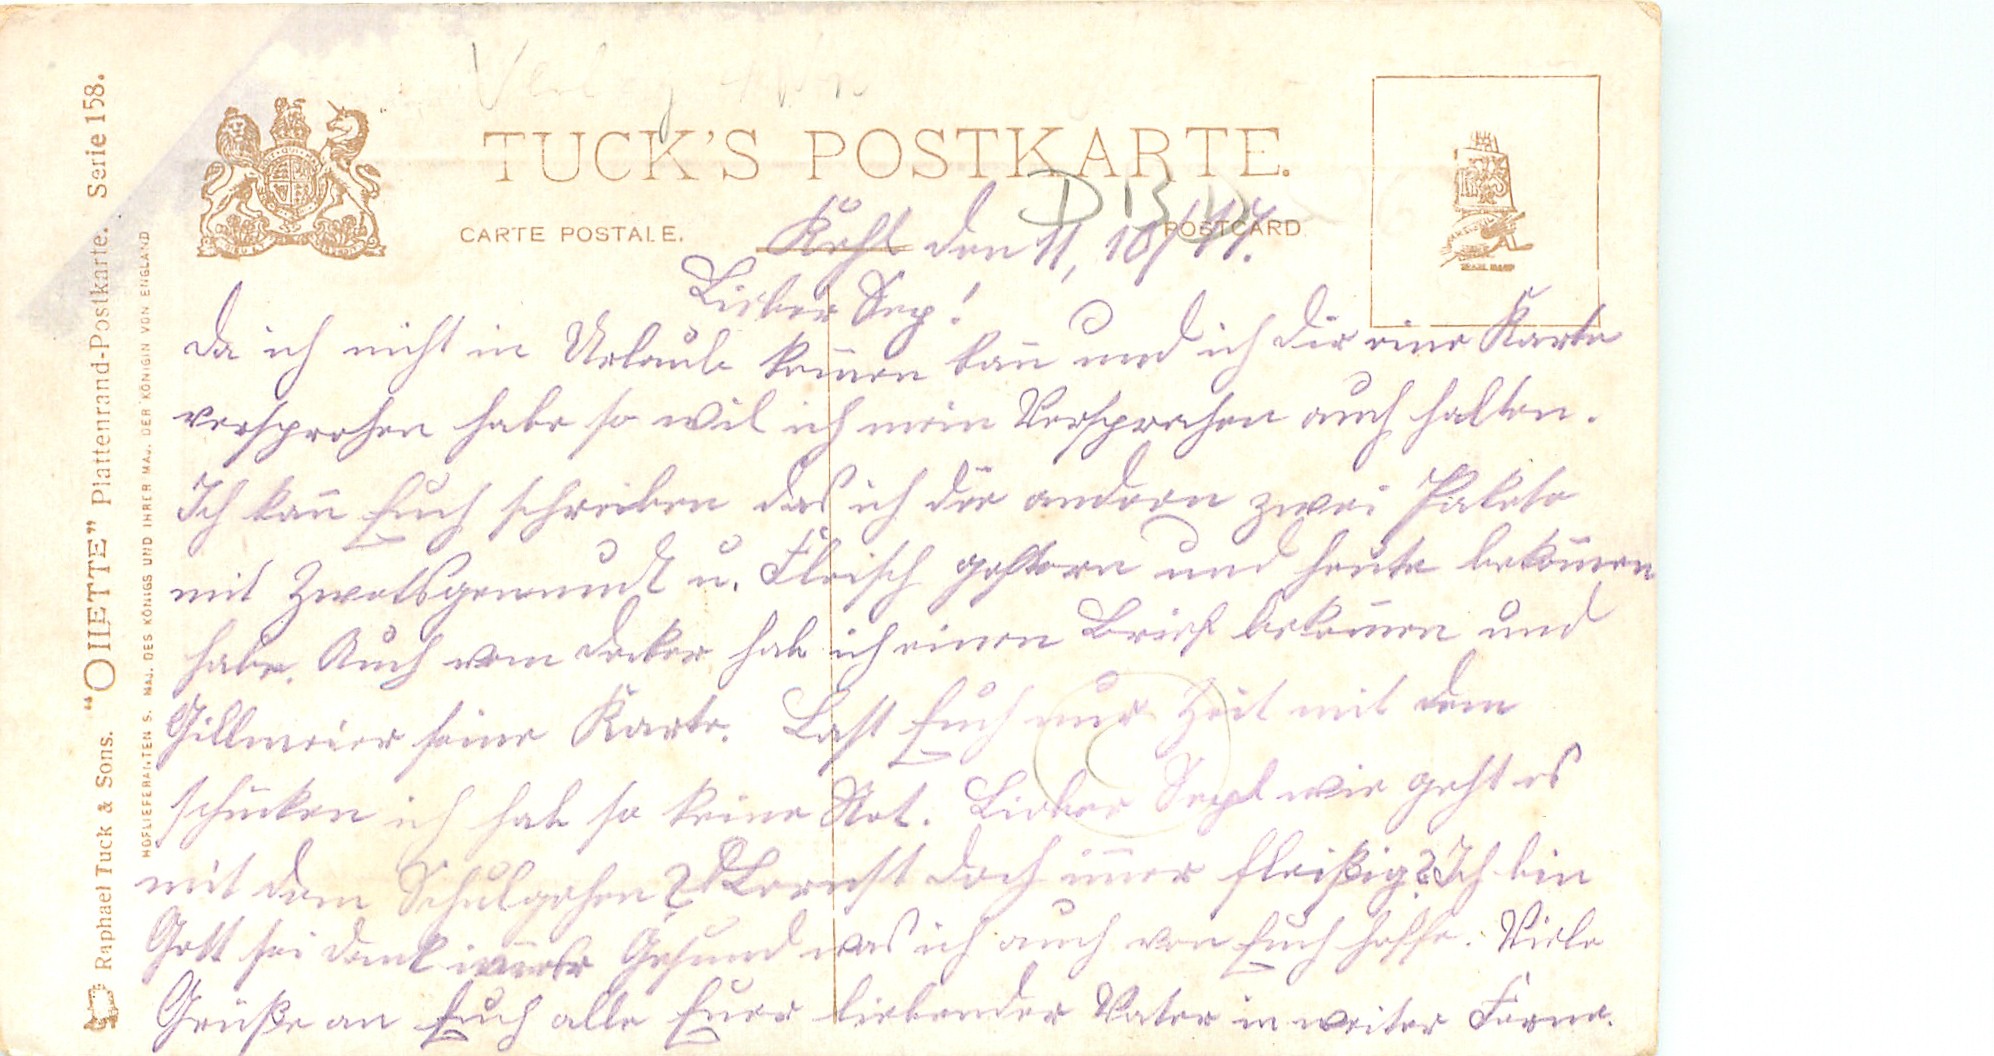 Raphael Tuck & Sons. "OILETTE" Plattenrand-Postkarte. Serie 158.
HOFLIEFERANTEN S. MAJ. DES KÖNIGS UND IHRER MAJ. DER KÖNIGIN VON ENGLAND
TUCK'S POSTKARTE.
CARTE POSTALE.
POSTCARD
Kehl den 11, 10/17.
Lieber Sep!
Da ich nicht in Urlaub kom̄en kan̄ und ich dir eine Karte
versprochen habe so wil ich mein Versprechen auch halten.
Ich kan̄ Euch schreiben das ich die andern zwei Pakete
mit u. Fleisch gestern und heute bekom̄en
habe. Auch vom hab ich einen Brief bekom̄en und
Gillmeier seine Karte. Last Euch nur Zeit mit dem
schicken ich hab so keine Not. Lieber Sepl wie geht es
mit dem Schulgehen? Lernst doch im̄er fleißig? Ich bin
Gott sei dank Gesund was ich auch von Euch hoffe. Viele
Grüße an Euch alle Euer liebender Vater in weiter Ferne.